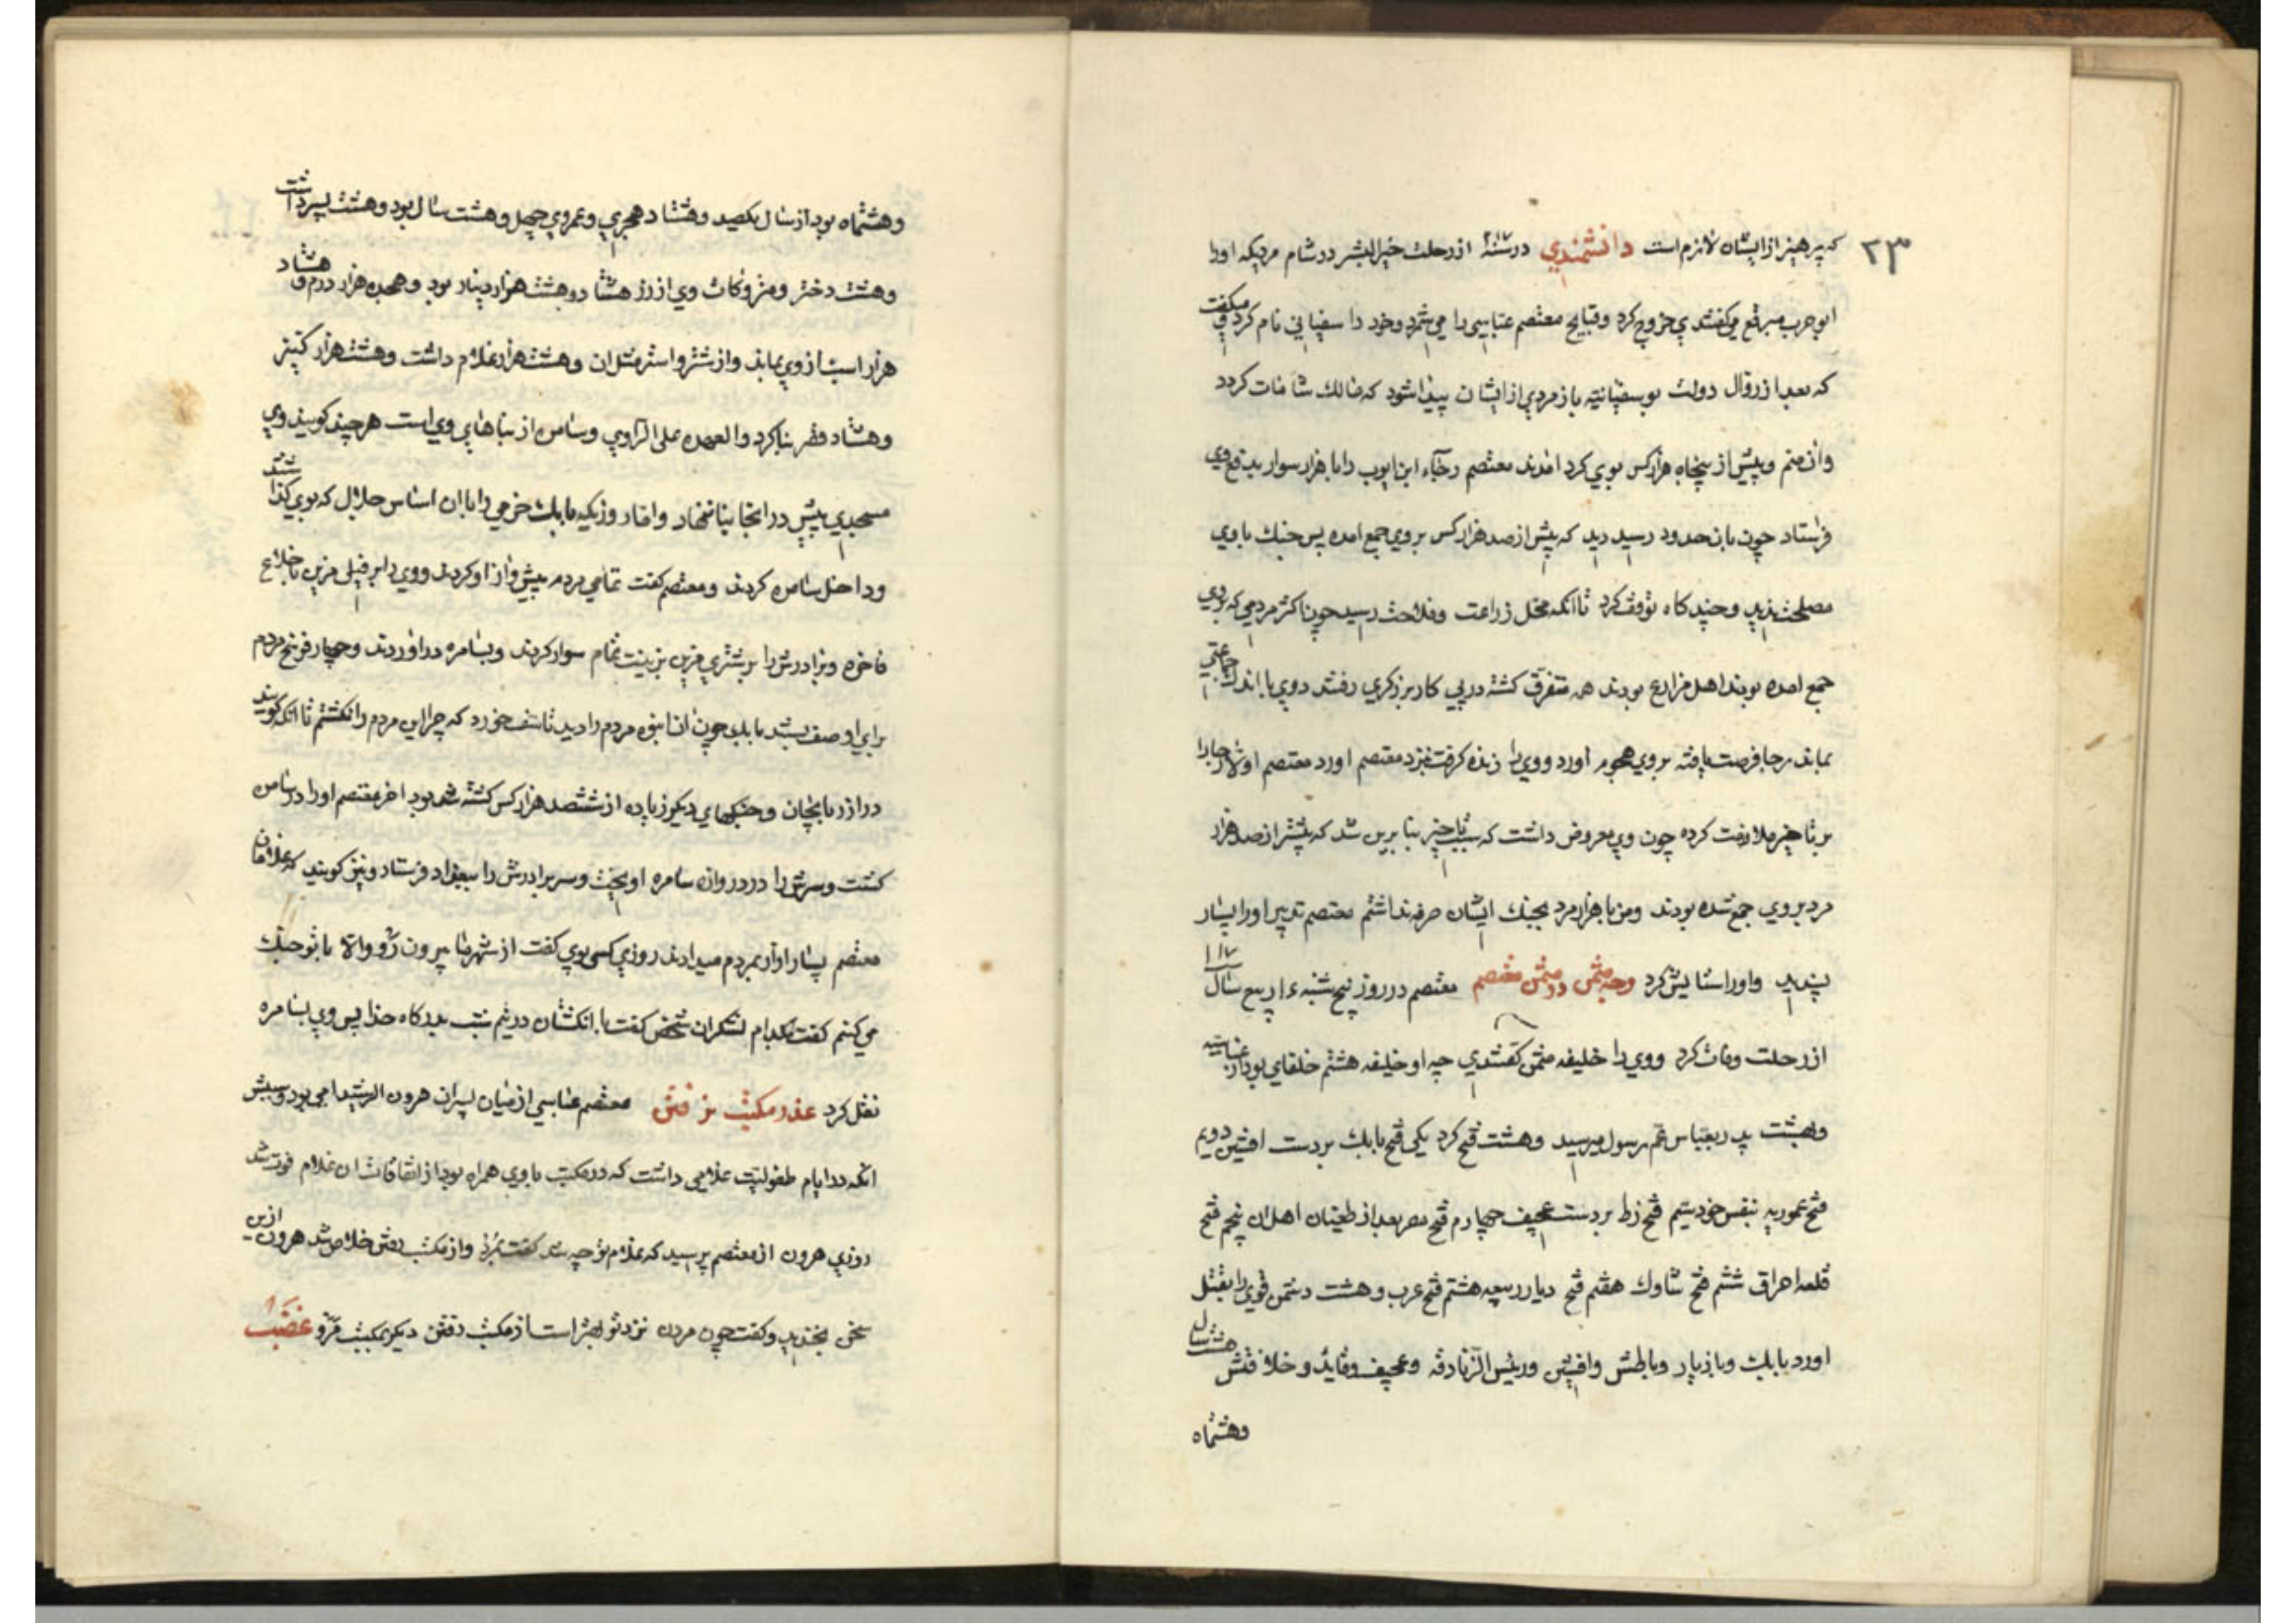 ۲۳
که پرهیز از ایشان لازم است دانشمندی در سنهٔ ۲۱۷ از رحلت خیر البشر در شام مردیکه او را
ابو حرب مبرقع میکفتندی خروج کرد و قبایح معتصم عباسی را می شمرد و خود را سفیانی نام کرد و میکفت
که بعد از زوال دولت بوسفیانیه باز مردی از ایشان پیدا شود که مالک شامات کردد
و آن منم و بیش از پنجاه هزار کس بوی کرد آمدند معتصم رجاء ابن ایوب را با هزار سوار بدفع وی
فرستاد چون بآن حدود رسید دید که بیش از صد هزار کس بر وی جمع آمده پس جنک با وی
مصلحت ندید و چند کاه توقف کرد تا آنکه محل زراعت و فلاحت رسید چون اکثر مردمی که بر وی
جمع آمده بودند اهل مزارع بودند همه متفرق کشته در پی کار برزکری رفتند و وی با اندک جماعتی
بماند رجا فرصت یافته بر وی هجوم آورد و وی را زنده کرفت نزد معتصم آورد معتصم اولا رجا را
بر تاخیر ملازمت کرده چون وی معروض داشت که سبب تاخیر بنا برین شد که بیشتر از صد هزار
مرد بر وی جمع شده بودند و من با هزار مرد بجنک ایشان صرفه نداشتم معتصم تدبیر او را بسیار
پسندید و او را ستایش کرد وجه مثمن در مثمن معتصم معتصم در روز پنج شنبه ربیع سال ۲۱۷
از رحلت وفات کرد و وی را خلیفه مثمن کفتندی چه او خلیفه هشتم خلفای بود از عباسیه
و بهشت پدر بعباس عم رسول میرسید و هشت فتح کرد یکی فتح بابک بر دست افشین دویم
فتح عموریه بنفس خود سیم فتح زط بر دست عجیف چهارم فتح مصر بعد از طغیان اهل آن پنجم فتح
قلعه احراق ششم فتح شاوک هفتم فتح دیار ربیعه هشتم فتح عرب و هشت دشمن قوی را بقتل
آورد بابک و مازیار و باطش و افشین و رئیس الزنادقه و عجیف و قاید و خلافتش هشت سال
وهشتماه
وهشتماه بود از سال یکصد و هشتاد هجری و عمر وی چهل و هشت سال بود و هشت پسر داشت
و هشت دختر و متروکات وی از زر هشتاد و هشت هزار دینار بود و هجده هزار درم و هشتاد
هزار اسب از وی بماند و از شتر و استر مثل آن و هشت هزار غلام داشت و هشت هزار کنیز
و هشتاد قصر بنا کرد والعهده علی الراوی و سامره از بناهای وی است هر چند کویند وی
مسجدی بیش در انجا بنا ننهاد و اما روزیکه بابک خرمی را با آن اساس جلال که بوی کذاشتند
و داخل سامره کردند و معتصم کفت تمامی مردم پیشواز او کردند و وی را بر فیلی مزین با خلاع
فاخره و برادرش را بر شتری مزین بزینت تمام سوار کردند و بسامره در آوردند و چهار فرسخ مردم
برای او صف بستند بابک چون آن انبوه مردم را دید تاسف خورد که چرا این مردم را نکشتم تا آنکه کویند
در آذربایجان و جنکهای دیکر زیاده از ششصد هزار کس کشته شده بود آخر معتصم او را در سامره
کشت و سرش را در دروازه سامره آویخت و سر برادرش را ببغداد فرستاد و نیز کویند که غلامان
معتصم بسیار آزار بمردم میدادند روزی کسی بوی کفت از شهر ما بیرون رو و الا با تو جنک
می کنم کفت بکدام لشکران شخص کفت با انکشتان در نیم شب بدرکاه خدا پس وی بسامره
نقل کرد عذر مکتب نرفتن معتصم عباسی از میان پسران هرون الرشید امی بود و سببش
آنکه در ایام طفولیت غلامی داشت که در مکتب با وی همراه بود از اتفاقات آن غلام فوت شد
روزی هرون از معتصم پرسید که غلام تو چه شد کفت بمرد و از مکتب رفتن خلاص شد هرون ازین
سخن بخندید و کفت چون مردن نزد تو بهتر است از مکتب رفتن دیکر بمکتب مرو غضب